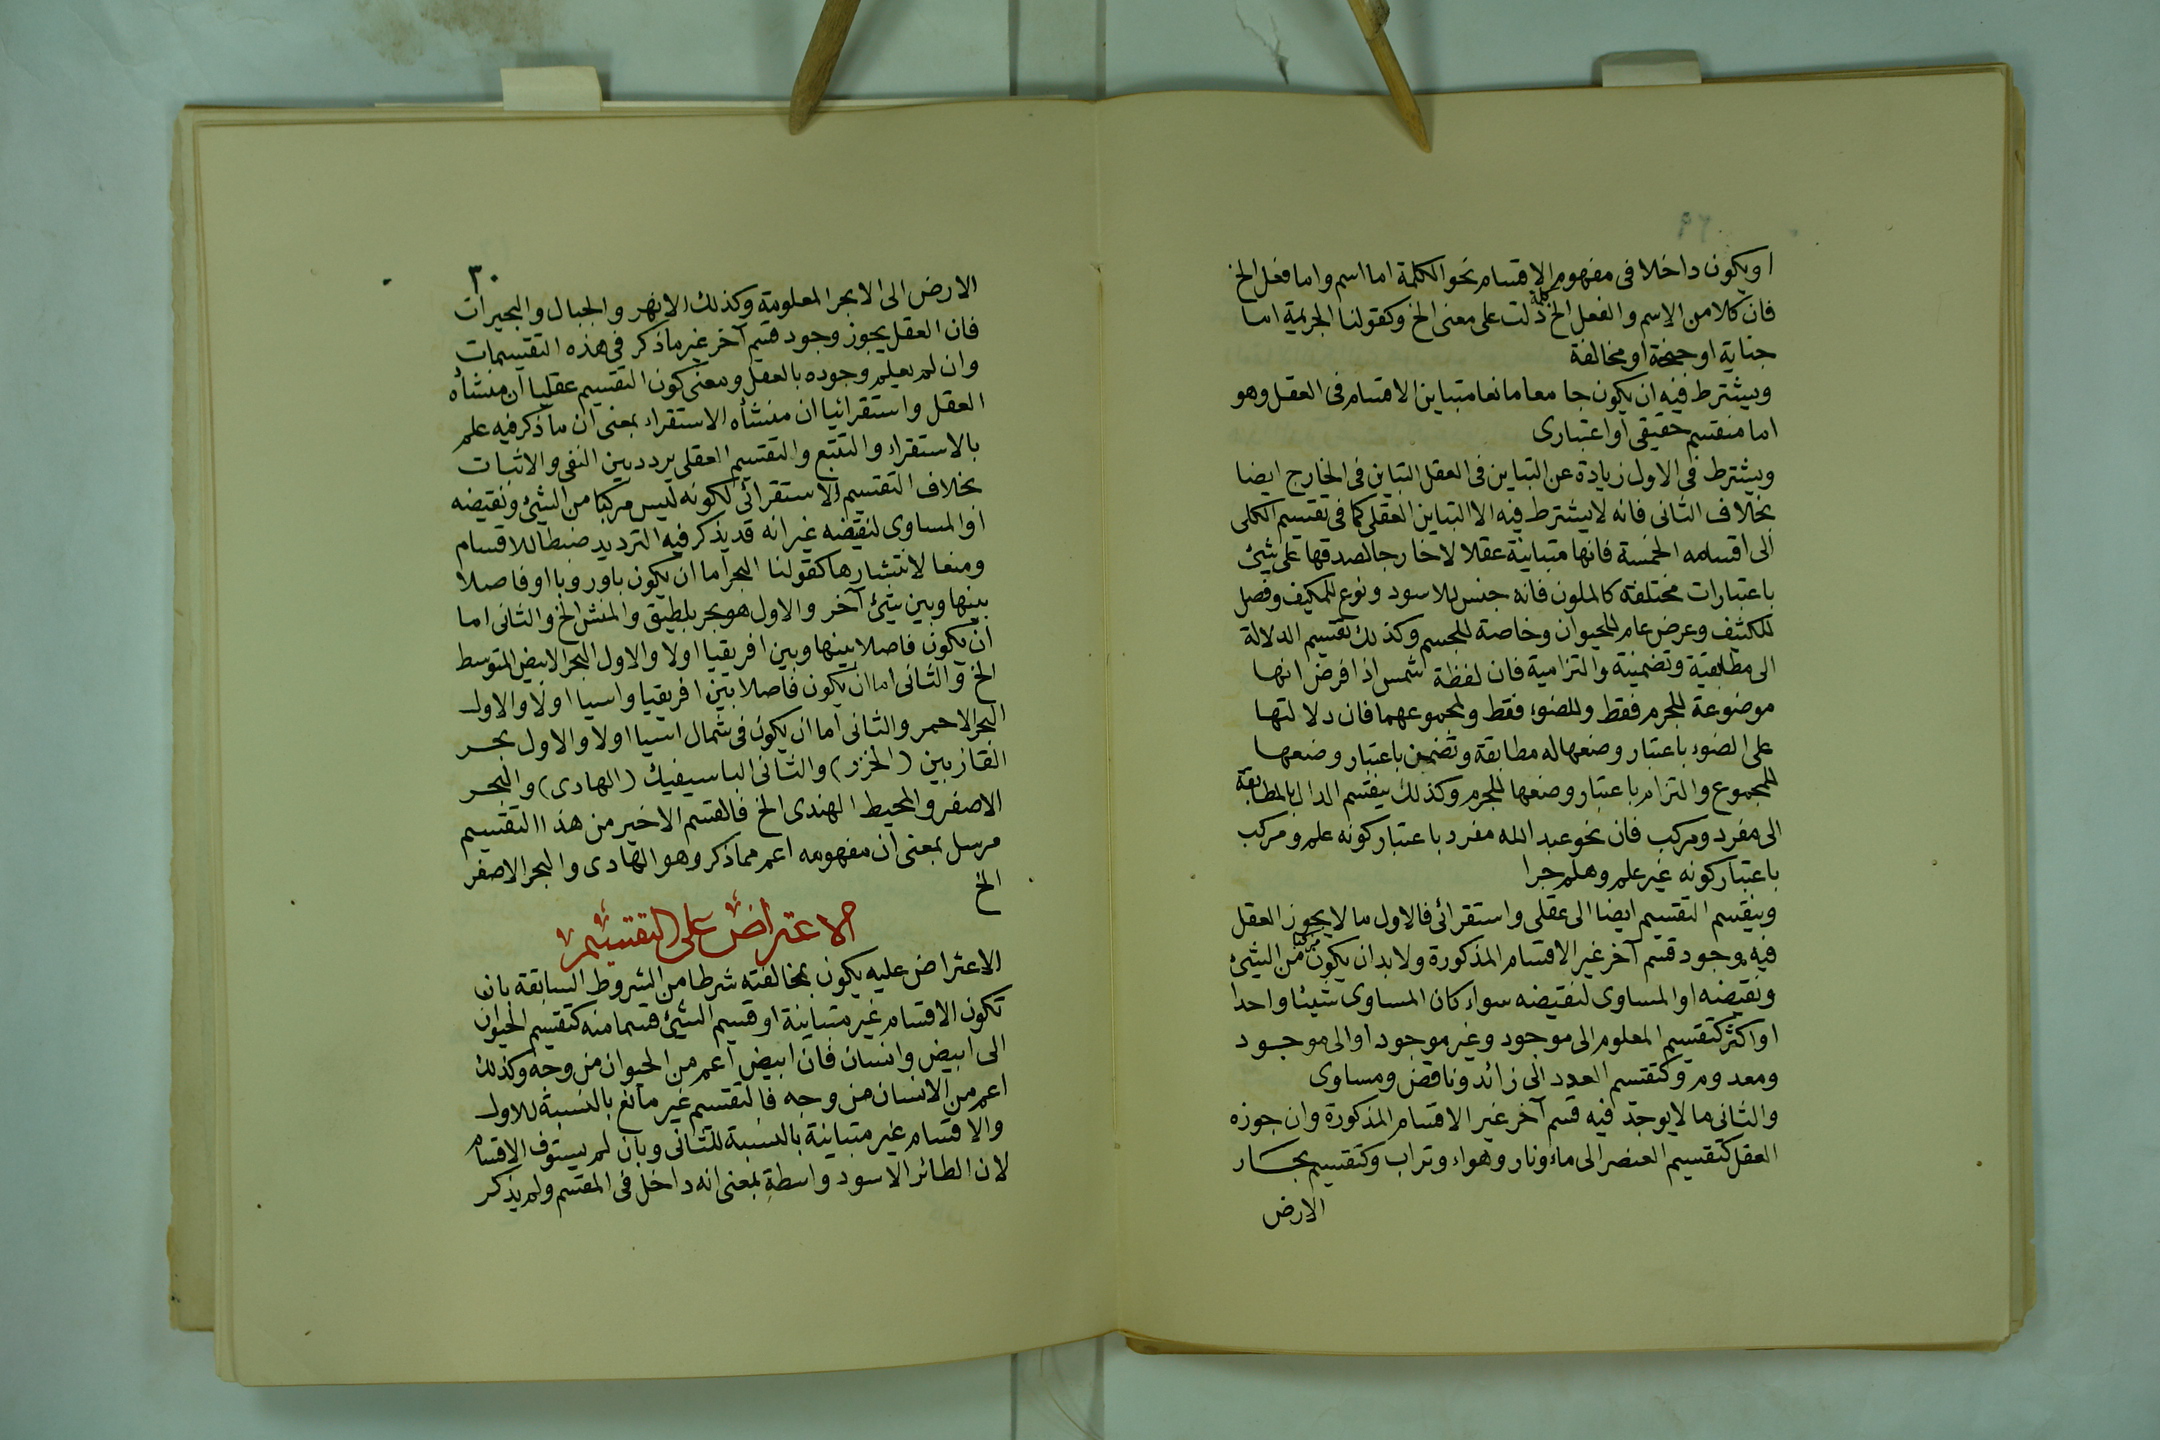 ٢٩
او يكون داخلا فى مفهوم الاقسام نحو الكلمة اما اسم واما فعل الخ
فان كلا من الاسم والفعل الخ كلمة دلت على معنى الخ وكقولنا الجريمة اما
جناية او جنحة او مخالفة
ويشترط فيه ان يكون جامعا مانعا متباين الاقسام فى العقل وهو
اما منقسم حقيقى او اعتبارى
ويشترط فى الاول زيادة عن التباين فى العقل التباين فى الخارج ايضا
بخلاف الثانى فانه لا يشترط فيه الا التباين العقلى كما فى تقسيم الكلى
الى اقسامه الخمسة فانها متباينة عقلا لا خارجا لصدقها على شئ
باعتبارات مختلفة كالملون فانه جنس للاسود ونوع للمكيف وفصل
للكثيف وعرض عام للحيوان وخاصة للجسم وكذلك تقسيم الدلالة
الى مطابقية وتضمنية والتزامية فان لفظة شمس اذا فرض انها
موضوعة للجرم فقط وللضوء فقط ولمجموعهما فان دلالتها
على الضوء باعتبار وضعها له مطابقة وتضمن باعتبار وضعها
للمجموع والتزام باعتبار وضعها للجرم وكذلك ينقسم الدال بالمطابقة
الى مفرد ومركب فان نحو عبد الله مفرد باعتبار كونه علم ومركب
باعتبار كونه غير علم وهلم جرا
وينقسم التقسيم ايضا الى عقلى واستقرائى فالاول ما لا يجوز العقل
فيه وجود قسم آخر غير الاقسام المذكورة ولابد ان يكون مركبا من الشئ
ونقيضه او المساوى لنقيضه سواء كان المساوى شيئا واحدا
او اكثر كتقسيم المعلوم الى موجود وغير موجود او الى موجود
ومعدوم وكتقسيم العدد الى زائد وناقص ومساوى
والثانى ما لا يوجد فيه قسم آخر غير الاقسام المذكورة وان جوزه
العقل كتقسيم العنصر الى ماء ونار وهواء وتراب وكتقسيم بحار
الارض
٣٠
الارض الى الابحر المعلومة وكذلك الانهر والجبال والبحيرات
فان العقل يجوز وجود قسم آخر غير ماذكر فى هذه التقسيمات
وان لم يعلم وجوده بالعقل ومعنى كون التقسيم عقليا ان منشأه
العقل واستقرائيا ان منشأه الاستقراء بمعنى ان ما ذكر فيه علم
بالاستقراء والتتبع والتقسيم العقلى يردد بين النفى والاثبات
بخلاف التقسيم الاستقرائى لكونه ليس مركبا من الشئ ونقيضه
او المساوى لنقيضه غير انه قد يذكر فيه الترديد ضبطا للاقسام
ومنعا لانتشارها كقولنا البحر اما ان يكون باوروبا او فاصلا
بينها وبين شئ آخر والاول هو بحر بلطيق والمنش الخ والثانى اما
ان يكون فاصلا بينها وبين افريقيا اولا والاول البحر الابيض المتوسط
الخ والثانى اما ان يكون فاصلا بين افريقيا واسيا اولا والاول
البحر الاحمر والثانى اما ان يكون فى شمال اسيا اولا والاول بحر
القازبين (الخزر) والثانى الباسيفيك (الهادى) والبحر
الاصفر والمحيط الهندى الخ فالقسم الاخير من هذا التقسيم
مرسل بمعنى ان مفهومه اعم مما ذكر وهو الهادى والبحر الاصفر
الخ
الاعتراض على التقسيم
الاعتراض عليه يكون بمخالفته شرطا من الشروط السابقة بان
تكون الاقسام غير متباينة او قسيم الشئ قسما منه كتقسيم الحيوان
الى ابيض وانسان فان ابيض اعم من الحيوان من وجه وكذلك
اعم من الانسان من وجه فالتقسيم غير مانع بالنسبة للاول
والاقسام غير متباينة بالنسبة للثانى وبان لم يستوف الاقسام
لان الطائر الاسود واسطة بمعنى انه داخل فى المقسم ولم يذكر